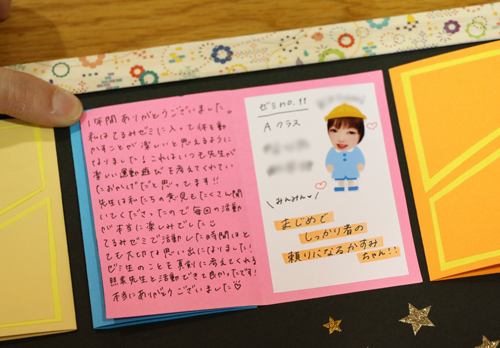 1年間ありがとうございました。
私はてるみゼミに入って体を動
かすことが楽しいと思えるように
なりました！これはいつも先生が
楽しい運動遊びを考えてくれてい
たおかげだと思ってます!!
先生は私たちの意見もたくさん聞
いてくださったので毎回の活動
が本当に楽しみでした
てるみゼミで活動した時間はと
ても大切な思い出になりました！
ゼミ生のことを真剣に考えてくれる
照美先生と活動できて良かったです！
本当にありがとうございました♡
ゼミno.11
Aクラス
みんみん♡
まじめで
しっかり者の
頼りになるかすみ
ちゃん!!